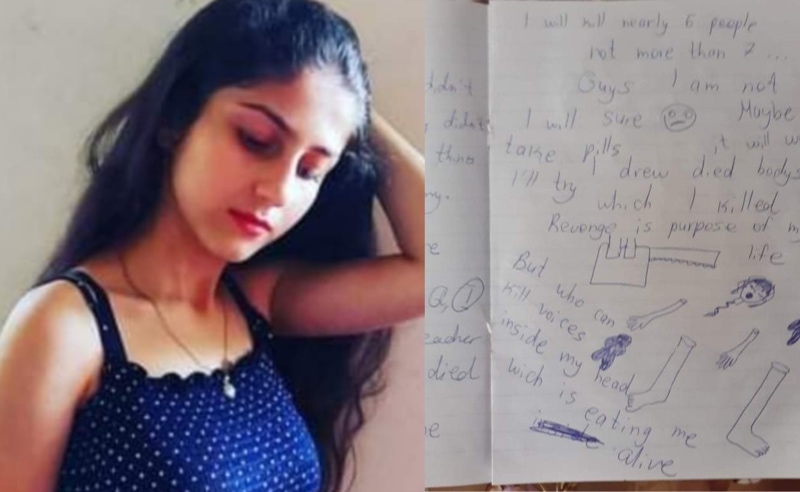 didn't
didn't
thing
e
teacher
died
e
I will kill nearly 6 people
not more than 7 ...
Guys I am not
I will sure Maybe
take pills it will w
I'll try I drew died bodys
which I killed
Revenge is purpose of m
life
But who can
kill voices
inside my head
wich is
eating me
alive